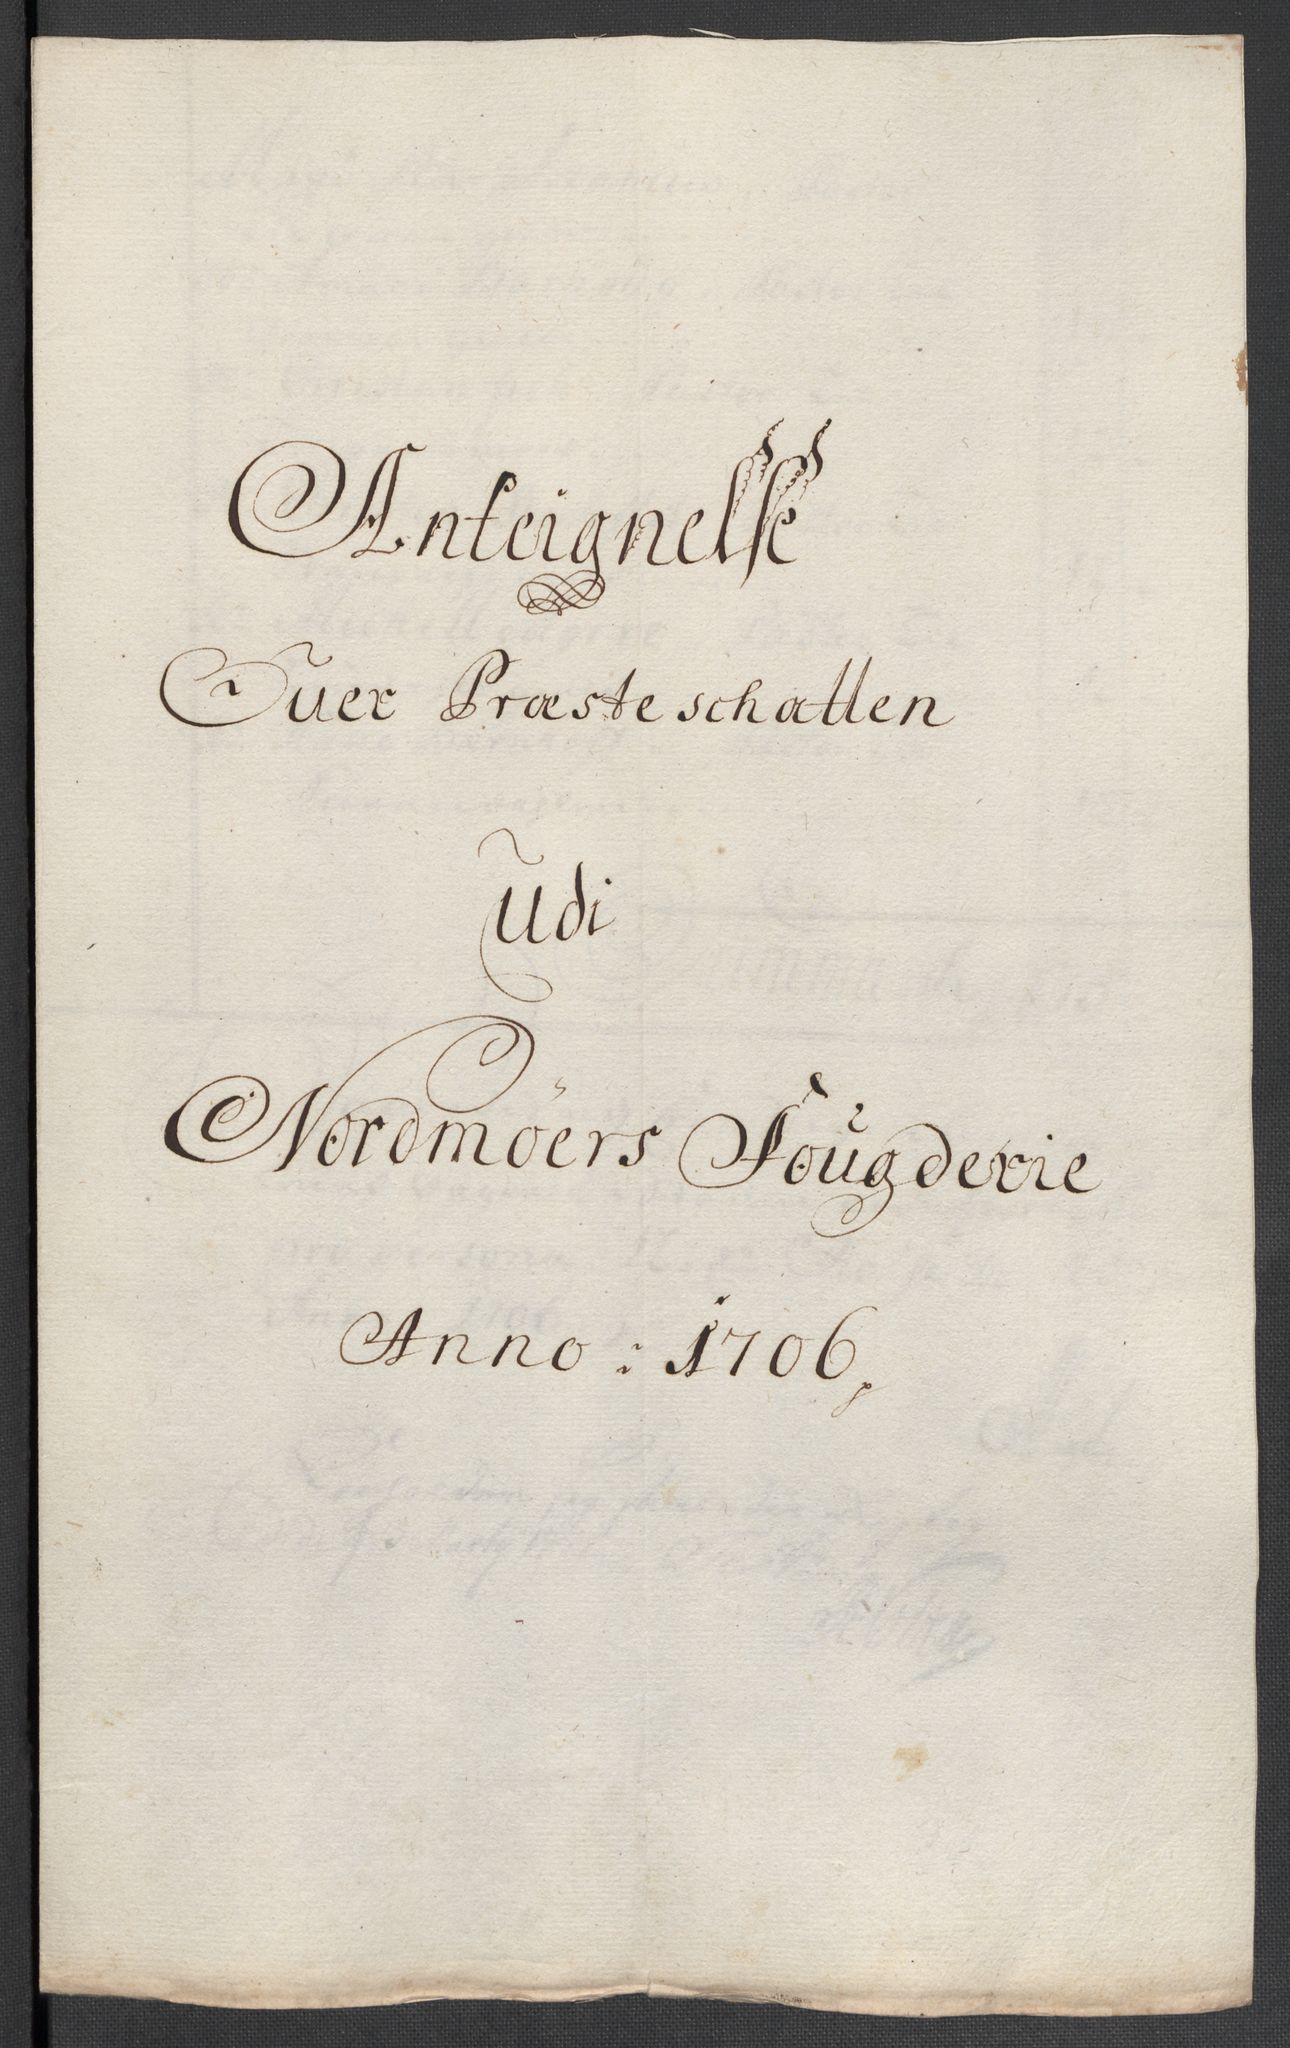 Anteignelse
Ouer Præsteschatten
Udi
Nordmøers Fougderie
Anno : 1706,